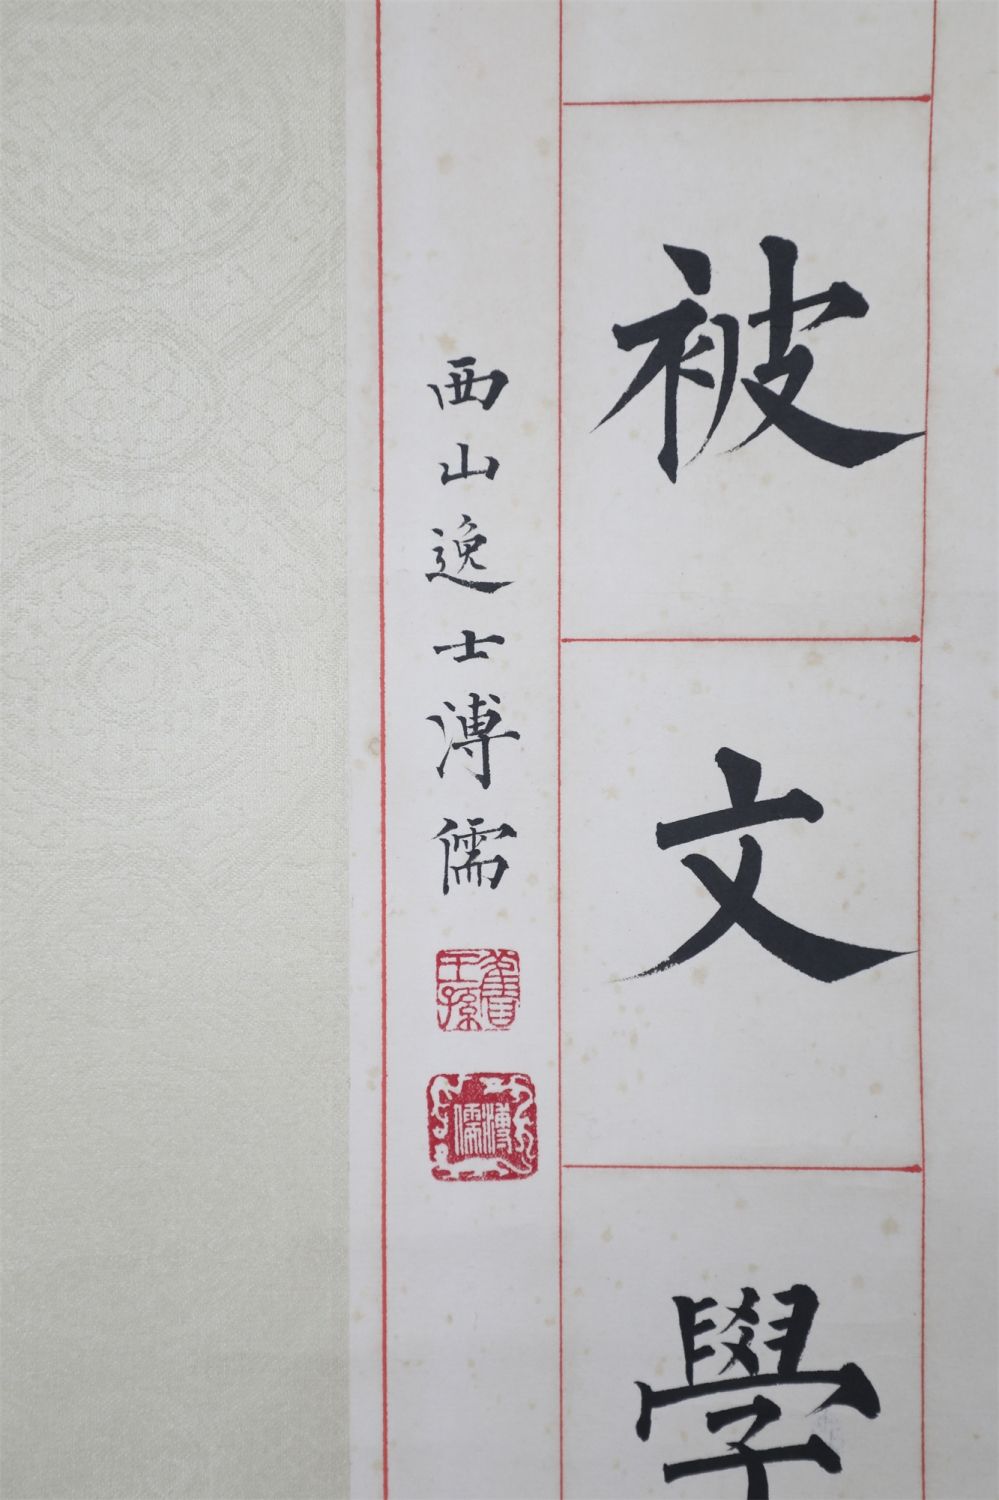 被文學
西山逸士溥儒
舊王孫
溥儒